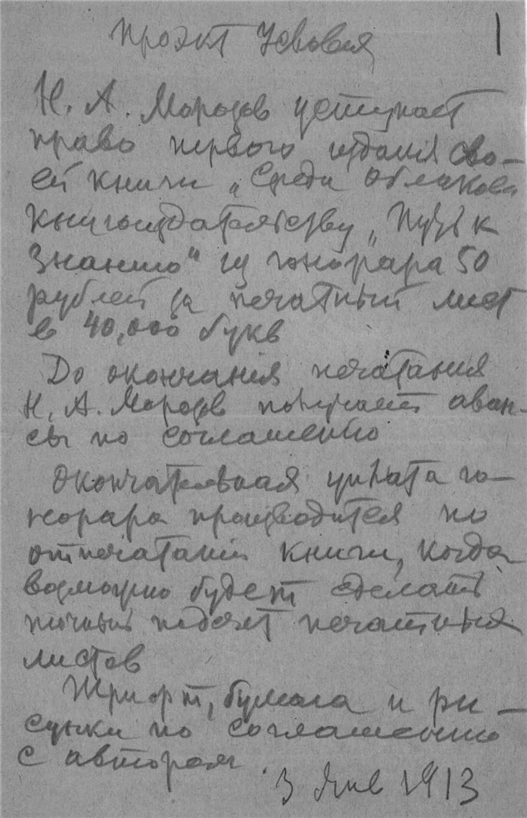 Проэкт Условія
1
Н. А. Морозов уступает
право первого изданія сво-
ей книги „Среди облаков"
книгоиздательству „Путь к
знанию" из гонорара 50
рублей за печатный лист
в 40,000 букв
До окончанія печатания
Н. А. Морозов получает аван-
сы по соглашению
Окончательная уплата го-
норара производится по
отпечатаніи книги, когда
возможно будет сделать
точный подсчет печатных
листов
Шрифт, бумага и ри-
сунки по соглашению
с автором.
3 Янв 1913